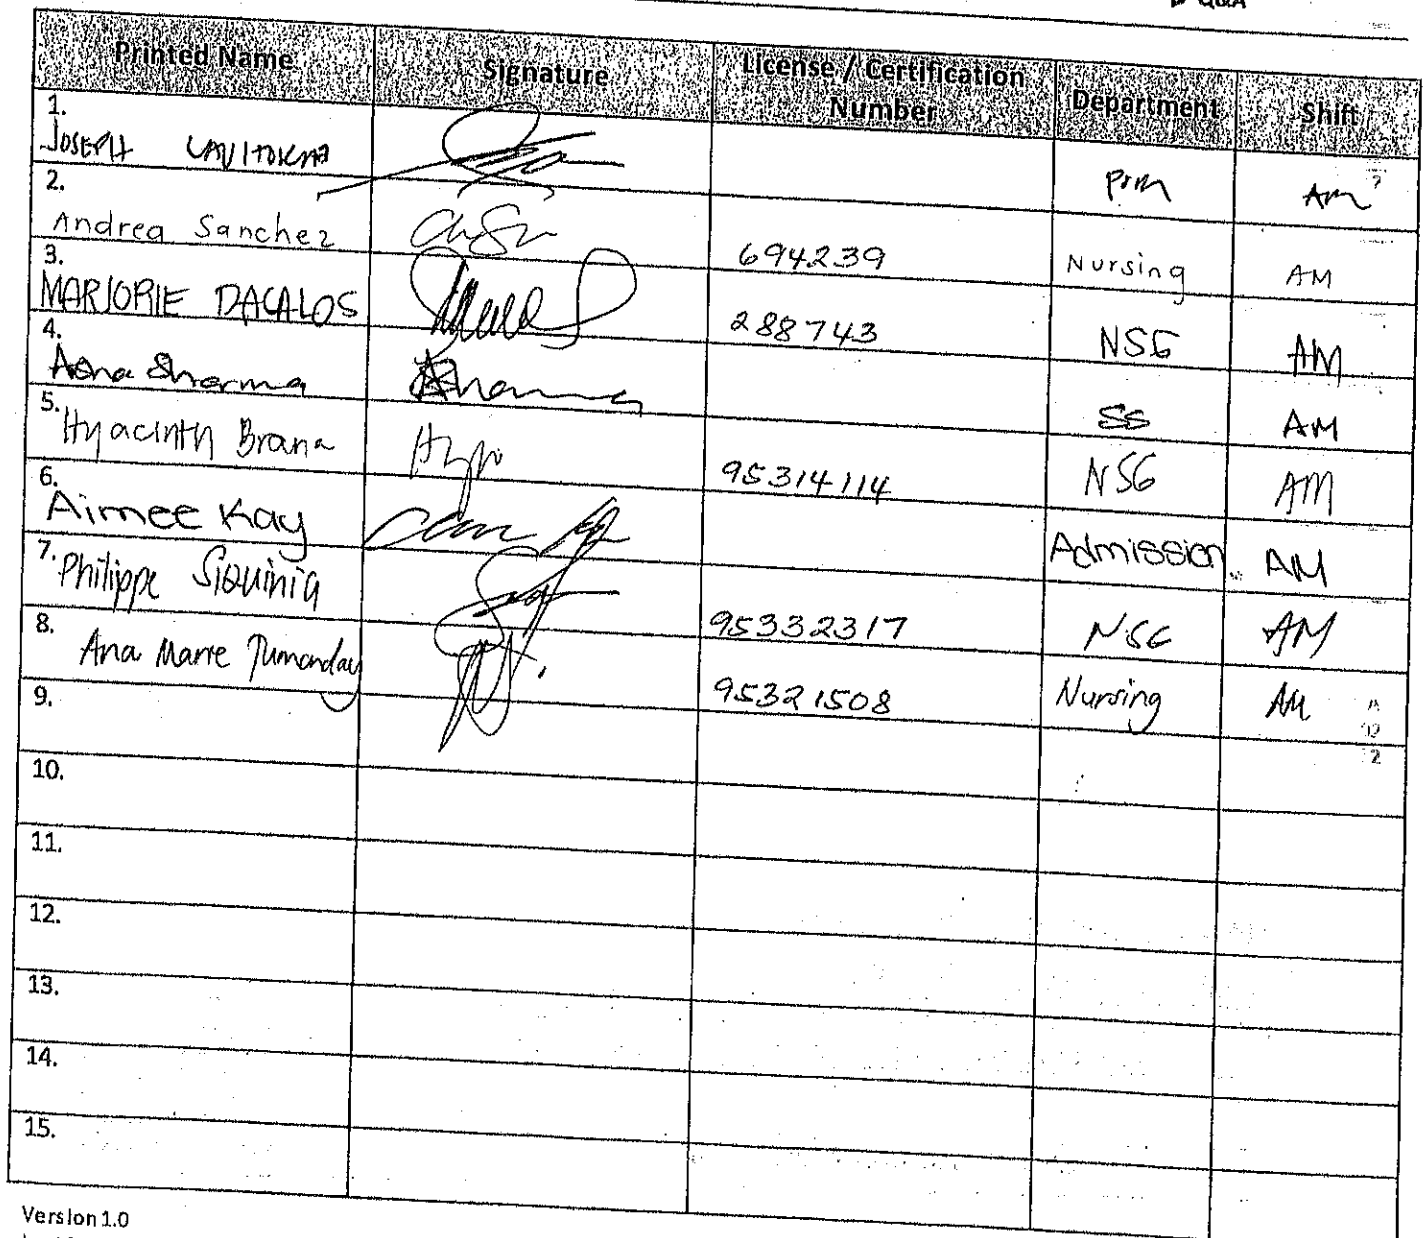 Q&A
Printed Name Signature License / Certification Number Department Shift
1. JOSEPH AM
2. Andrea Sanchez 694239 Nursing AM
3. MARJORIE DACALOS 288743 NSG AM
4. Asha Sharma SS AM
5. Hyacinth Brana 95314114 NSG AM
6. Aimee Kay Admission AM
7. Philippe Siquinia 95332317 NSG AM
8. Ana Marie Tumanday 95321508 Nursing AM
9.
10.
11.
12.
13.
14.
15.
Version 1.0